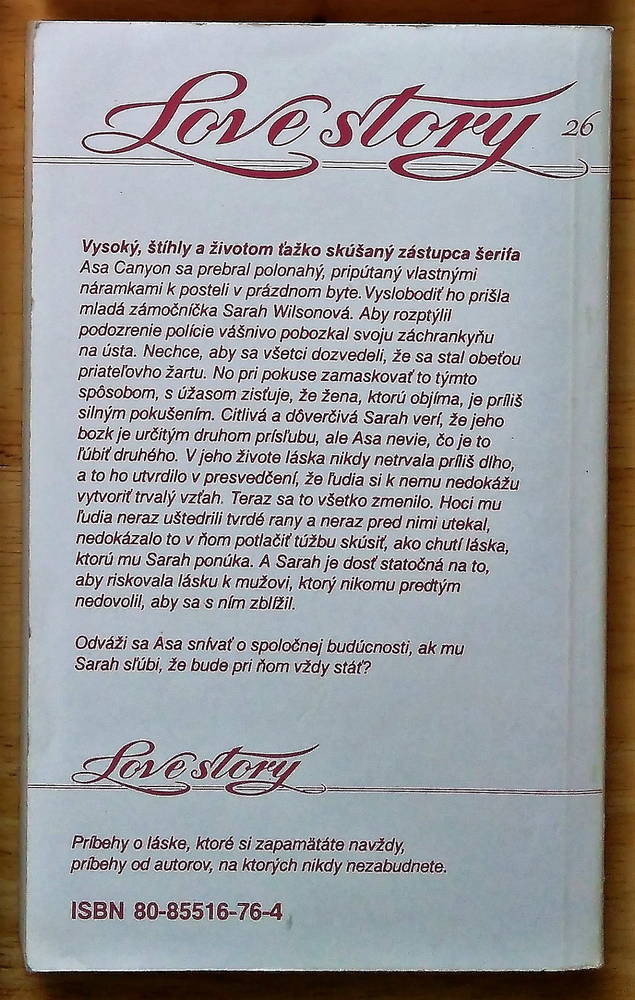 Love story 26
Vysoký, štíhly a životom ťažko skúšaný zástupca šerifa
Asa Canyon sa prebral polonahý, pripútaný vlastnými
náramkami k posteli v prázdnom byte. Vyslobodiť ho prišla
mladá zámočníčka Sarah Wilsonová. Aby rozptýlil
podozrenie polície vášnivo pobozkal svoju záchrankyňu
na ústa. Nechce, aby sa všetci dozvedeli, že sa stal obeťou
priateľovho žartu. No pri pokuse zamaskovať to týmto
spôsobom, s úžasom zisťuje, že žena, ktorú objíma, je príliš
silným pokušením. Citlivá a dôverčivá Sarah verí, že jeho
bozk je určitým druhom prísľubu, ale Asa nevie, čo je to
ľúbiť druhého. V jeho živote láska nikdy netrvala príliš dlho,
a to ho utvrdilo v presvedčení, že ľudia si k nemu nedokážu
vytvoriť trvalý vzťah. Teraz sa to všetko zmenilo. Hoci mu
ľudia neraz uštedrili tvrdé rany a neraz pred nimi utekal,
nedokázalo to v ňom potlačiť túžbu skúsiť, ako chutí láska,
ktorú mu Sarah ponúka. A Sarah je dosť statočná na to,
aby riskovala lásku k mužovi, ktorý nikomu predtým
nedovolil, aby sa s ním zblížil.
Odváži sa Asa snívať o spoločnej budúcnosti, ak mu
Sarah sľúbi, že bude pri ňom vždy stáť?
Love story
Príbehy o láske, ktoré si zapamätáte navždy,
príbehy od autorov, na ktorých nikdy nezabudnete.
ISBN 80-85516-76-4